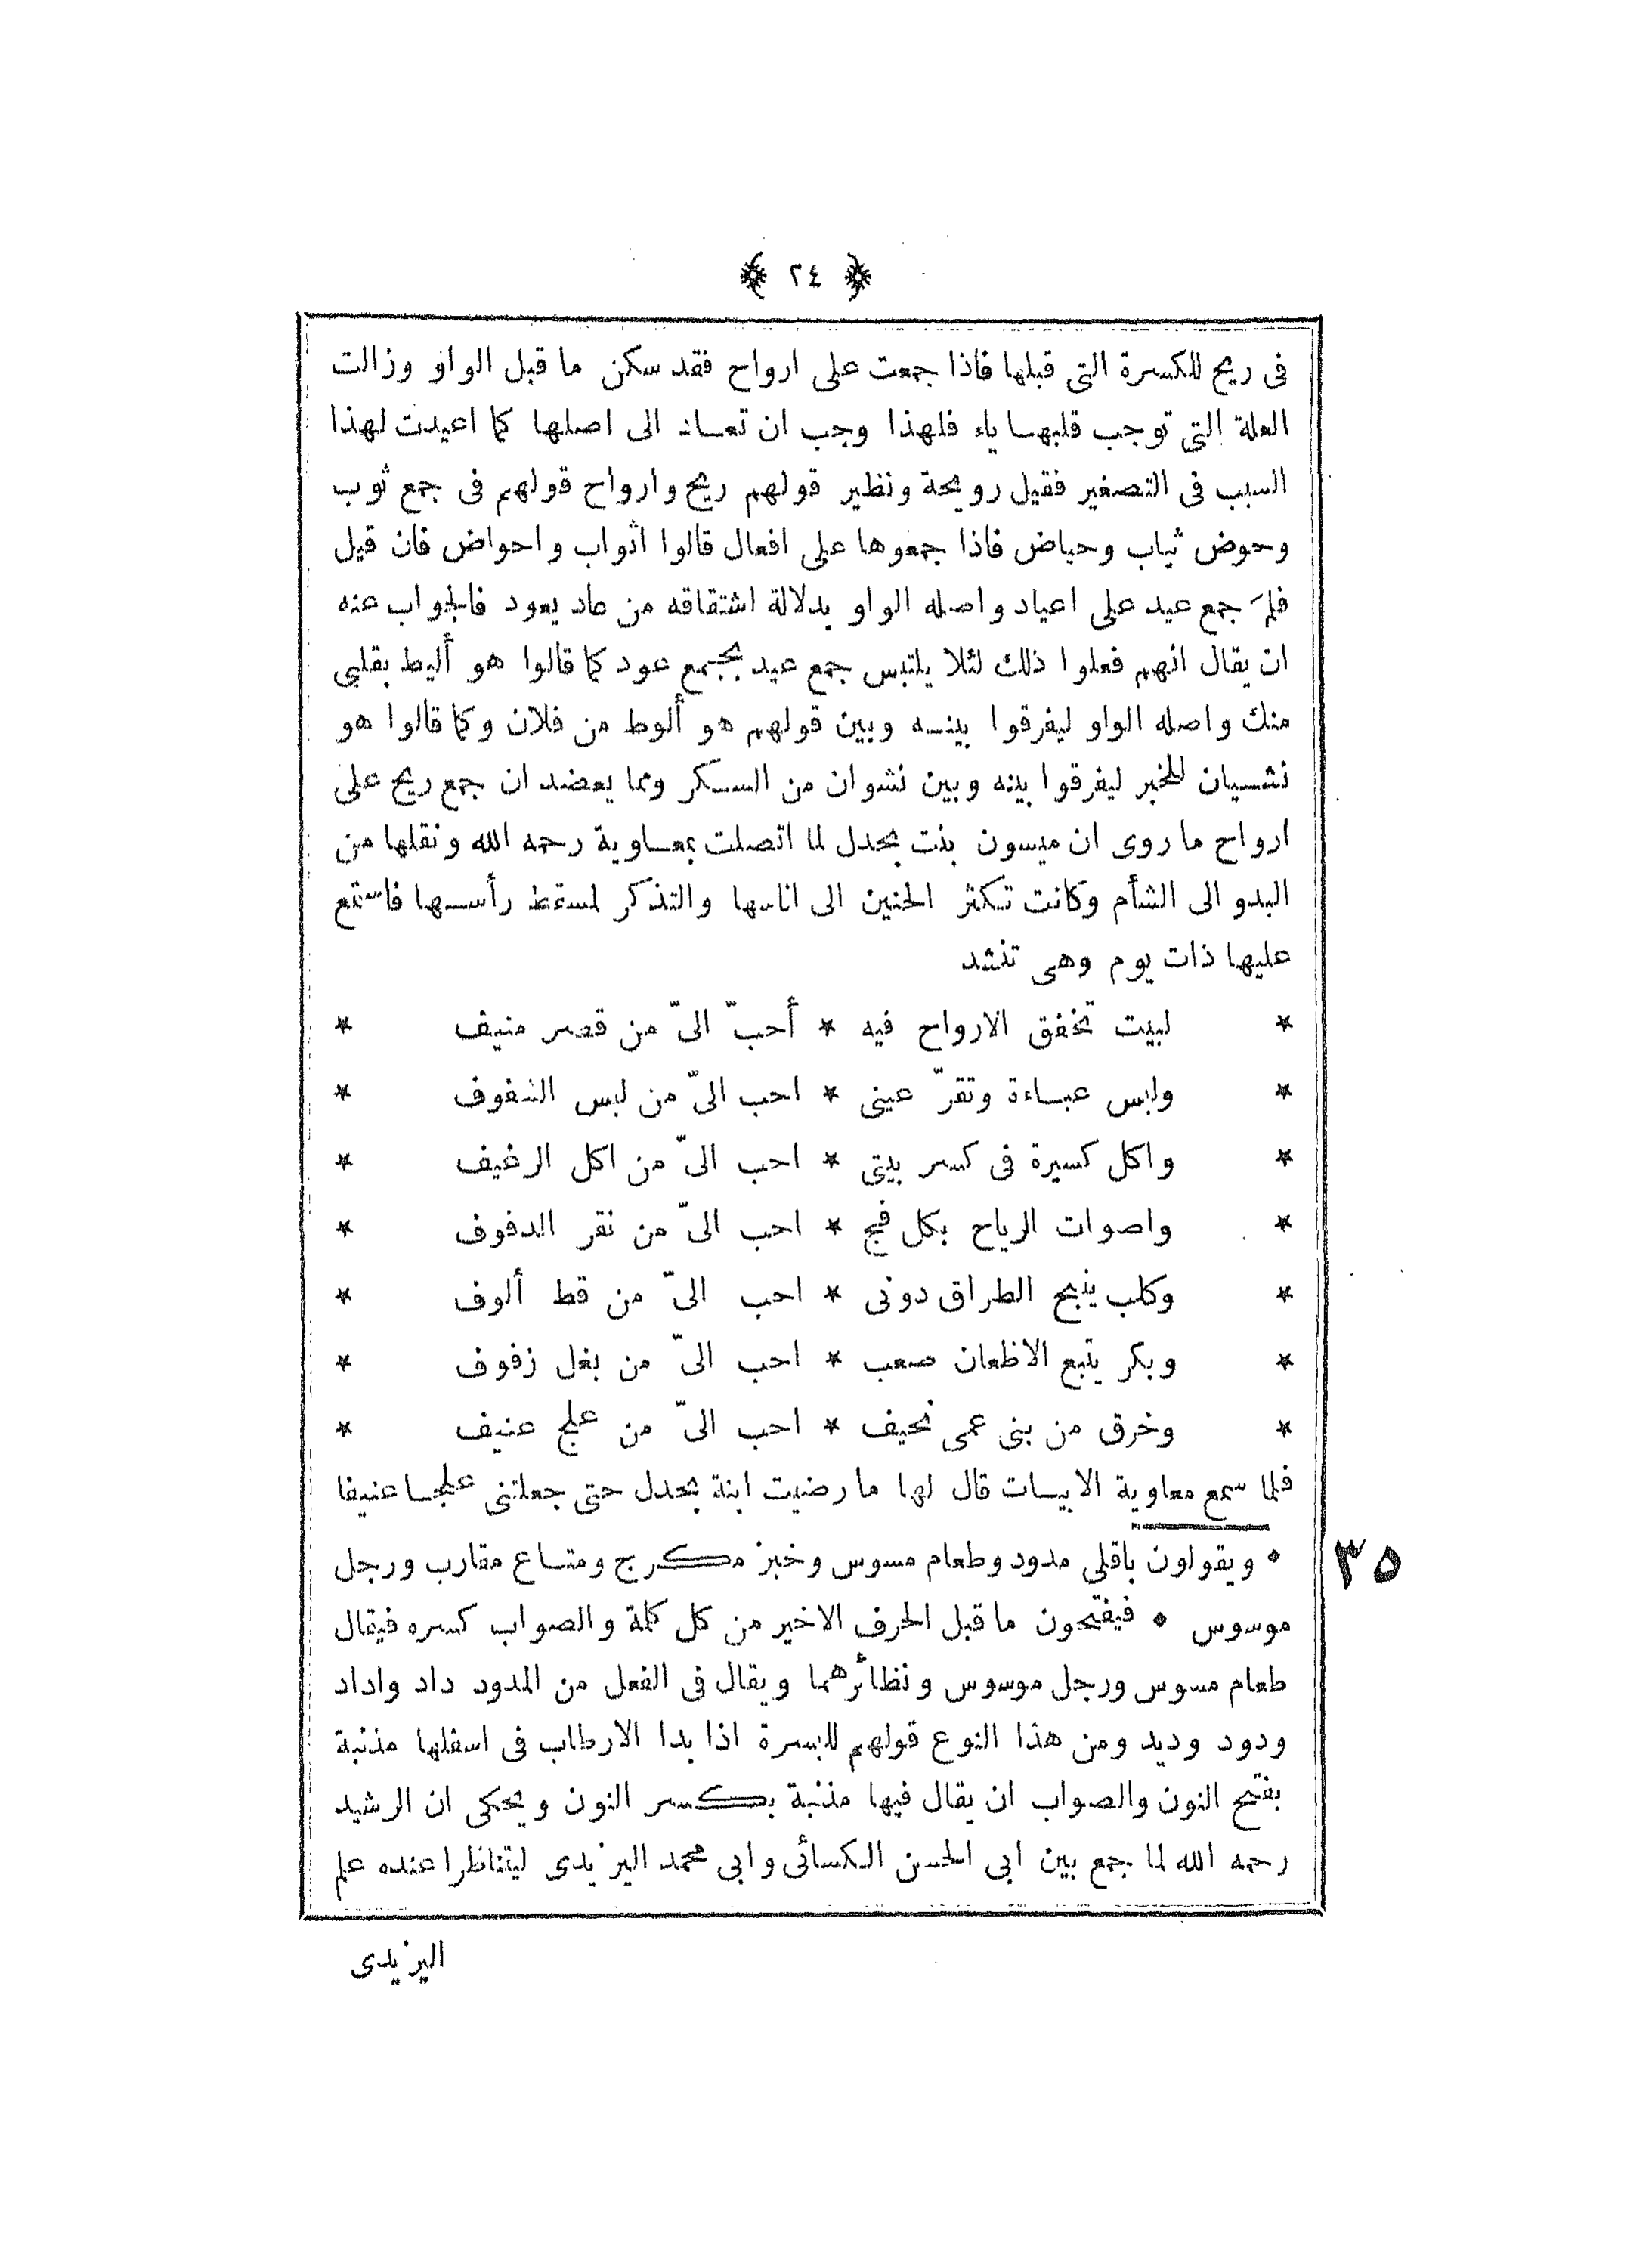 ﴿ ٢٤ ﴾
فى ريح للكسرة التى قبلها فاذا جمعت على ارواح فقد سكن ما قبل الواو وزالت
العلة التى توجب قلبها ياء فلهذا وجب ان تعاد الى اصلها كما اعيدت لهذا
السبب فى التصغير فقيل رويحة ونظير قولهم ريح وارواح قولهم فى جمع ثوب
وحوض ثياب وحياض فاذا جمعوها على افعال قالوا اثواب واحواض فان قيل
فلمَ جمع عيد على اعياد واصله الواو بدلالة اشتقاقه من عاد يعود فالجواب عنه
ان يقال انهم فعلوا ذلك لئلا يلتبس جمع عيد بجمع عود كما قالوا هو أليط بقلبى
منك واصله الواو ليفرقوا بينه وبين قولهم هو ألوط من فلان وكما قالوا هو
نشيان للخبر ليفرقوا بينه وبين نشوان من السكر ومما يعضد ان جمع ريح على
ارواح ما روى ان ميسون بنت بحدل لما اتصلت بمعاوية رحمه الله ونقلها من
البدو الى الشأم وكانت تكثر الحنين الى اناسها والتذكر لمسقط رأسها فاستمع
عليها ذات يوم وهى تنشد
* لبيت تخفق الارواح فيه * أحبّ الىّ من قصر منيف *
* ولبس عباءة وتقرّ عينى * احب الىّ من لبس الشفوف *
* واكل كسيرة فى كسر بيتى * احب الىّ من اكل الرغيف *
* واصوات الرياح بكل فج * احب الىّ من نقر الدفوف *
* وكلب ينبح الطراق دونى * احب الىّ من قط ألوف *
* وبكر يتبع الاظعان صعب * احب الىّ من بغل زفوف *
* وخرق من بنى عمى نحيف * احب الىّ من علج عنيف *
فلما سمع معاوية الابيات قال لها ما رضيت ابنة بحدل حتى جعلتنى علجا عنيفا
٣٥ • ويقولون باقلى مدود وطعام مسوس وخبز مكرج ومتاع مقارب ورجل
موسوس • فيفتحون ما قبل الحرف الاخير من كل كلمة والصواب كسره فيقال
طعام مسوس ورجل موسوس ونظائرهما ويقال فى الفعل من المدود داد واداد
ودود وديد ومن هذا النوع قولهم للبسرة اذا بدا الارطاب فى اسفلها مذنبة
بفتح النون والصواب ان يقال فيها مذنبة بكسر النون ويحكى ان الرشيد
رحمه الله لما جمع بين ابى الحسن الكسائى وابى محمد اليزيدى ليتناظرا عنده علم
اليزيدى